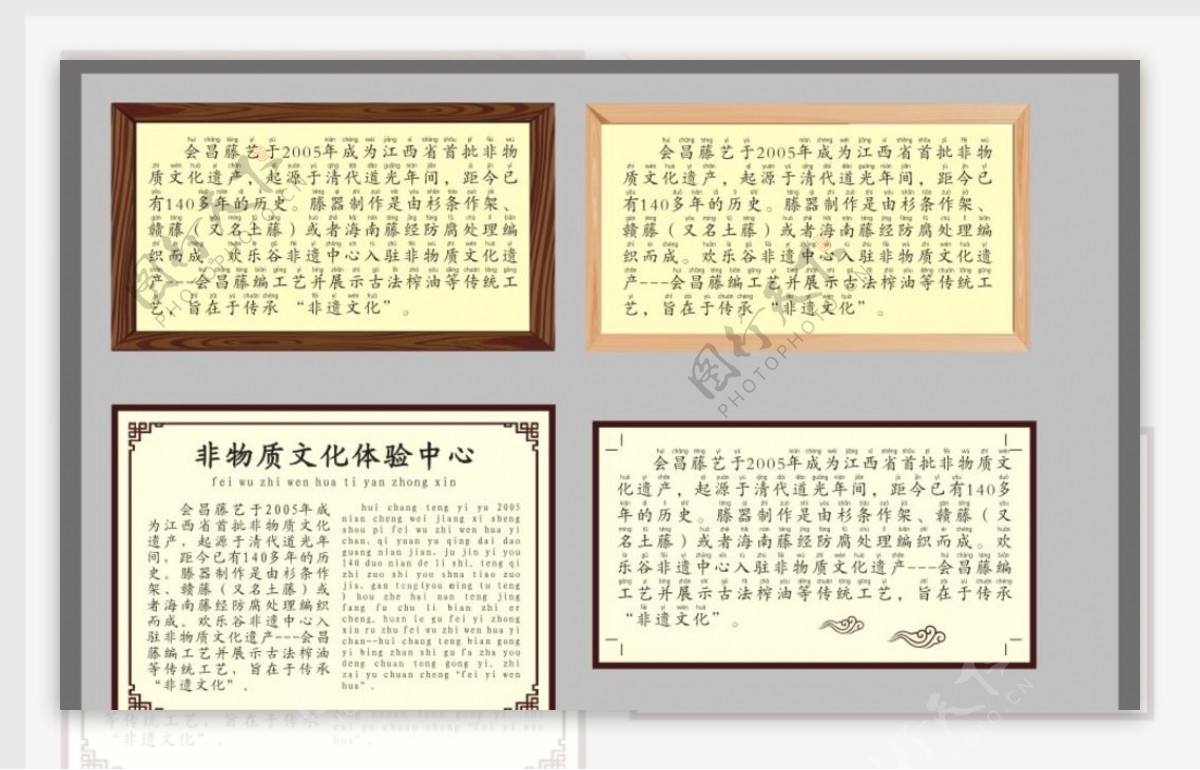 会昌藤艺于2005年成为江西省首批非物
质文化遗产，起源于清代道光年间，距今已
有140多年的历史。滕器制作是由杉条作架、
赣藤（又名土藤）或者海南藤经防腐处理编
织而成。欢乐谷非遗中心入驻非物质文化遗
产---会昌藤编工艺并展示古法榨油等传统工
艺，旨在于传承“非遗文化”。
会昌藤艺于2005年成为江西省首批非物
质文化遗产，起源于清代道光年间，距今已
有140多年的历史。滕器制作是由杉条作架、
赣藤（又名土藤）或者海南藤经防腐处理编
织而成。欢乐谷非遗中心入驻非物质文化遗
产---会昌藤编工艺并展示古法榨油等传统工
艺，旨在于传承“非遗文化”。
非物质文化体验中心
fei wu zhi wen hua ti yan zhong xin
会昌藤艺于2005年成
为江西省首批非物质文化
遗产，起源于清代道光年
间，距今已有140多年的历
史。滕器制作是由杉条作
架、赣藤（又名土藤）或
者海南藤经防腐处理编织
而成。欢乐谷非遗中心入
驻非物质文化遗产---会昌
藤编工艺并展示古法榨油
等传统工艺，旨在于传承
“非遗文化”.
hui chang teng yi yu 2005
nian cheng wei jiang xi sheng
shou pi fei wu zhi wen hua yi
chan, qi yuan yu qing dai dao
guang nian jian, ju jin yi you
140 duo nian de li shi, teng qi
zhi zuo shi you shna tiao zuo
jia, gan teng(you ming tu teng
) hou zhe hai nan teng jing
fang fu chu li bian zhi er
cheng, huan le gu fei yi zhong
xin ru zhu fei wu zhi wen hua yi
chan--hui chang teng bian gong
yi bing zhan shi gu fa zha you
deng chuan tong gong yi, zhi
zai yu chuan cheng "fei yi wen
hua".
会昌藤艺于2005年成为江西省首批非物质文
化遗产，起源于清代道光年间，距今已有140多
年的历史。滕器制作是由杉条作架、赣藤（又
名土藤）或者海南藤经防腐处理编织而成。欢
乐谷非遗中心入驻非物质文化遗产---会昌藤编
工艺并展示古法榨油等传统工艺，旨在于传承
“非遗文化”。